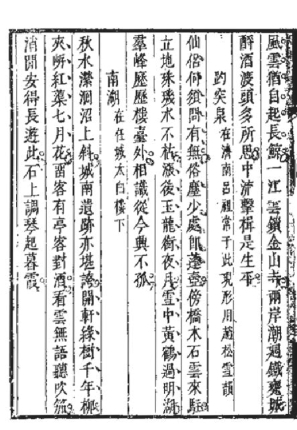 風雲猶自起長鯨一江雲鎖金山寺兩岸潮迴鐵甕城
酹酒渡頭多所思中流擊楫是生平
趵突泉在濟南呂祖常于此現形用趙松雪韻
仙侶何須問有無俗塵少處卽蓬壺傍橋木石雲來駐
立地珠璣水不枯浪後玉龍銜夜月雲中黃鶴過明湖
羣峰歷歷樓臺外相識從今興不孤
南湖在任城太白樓下
秋水瀠洄沼上斜城南遺跡亦堪誇開軒綠樹千年柳
夾岸紅蕖七月花留客有亭容對酒看雲無語聽吹笳
消閒安得長遊此石上調琴起暮霞